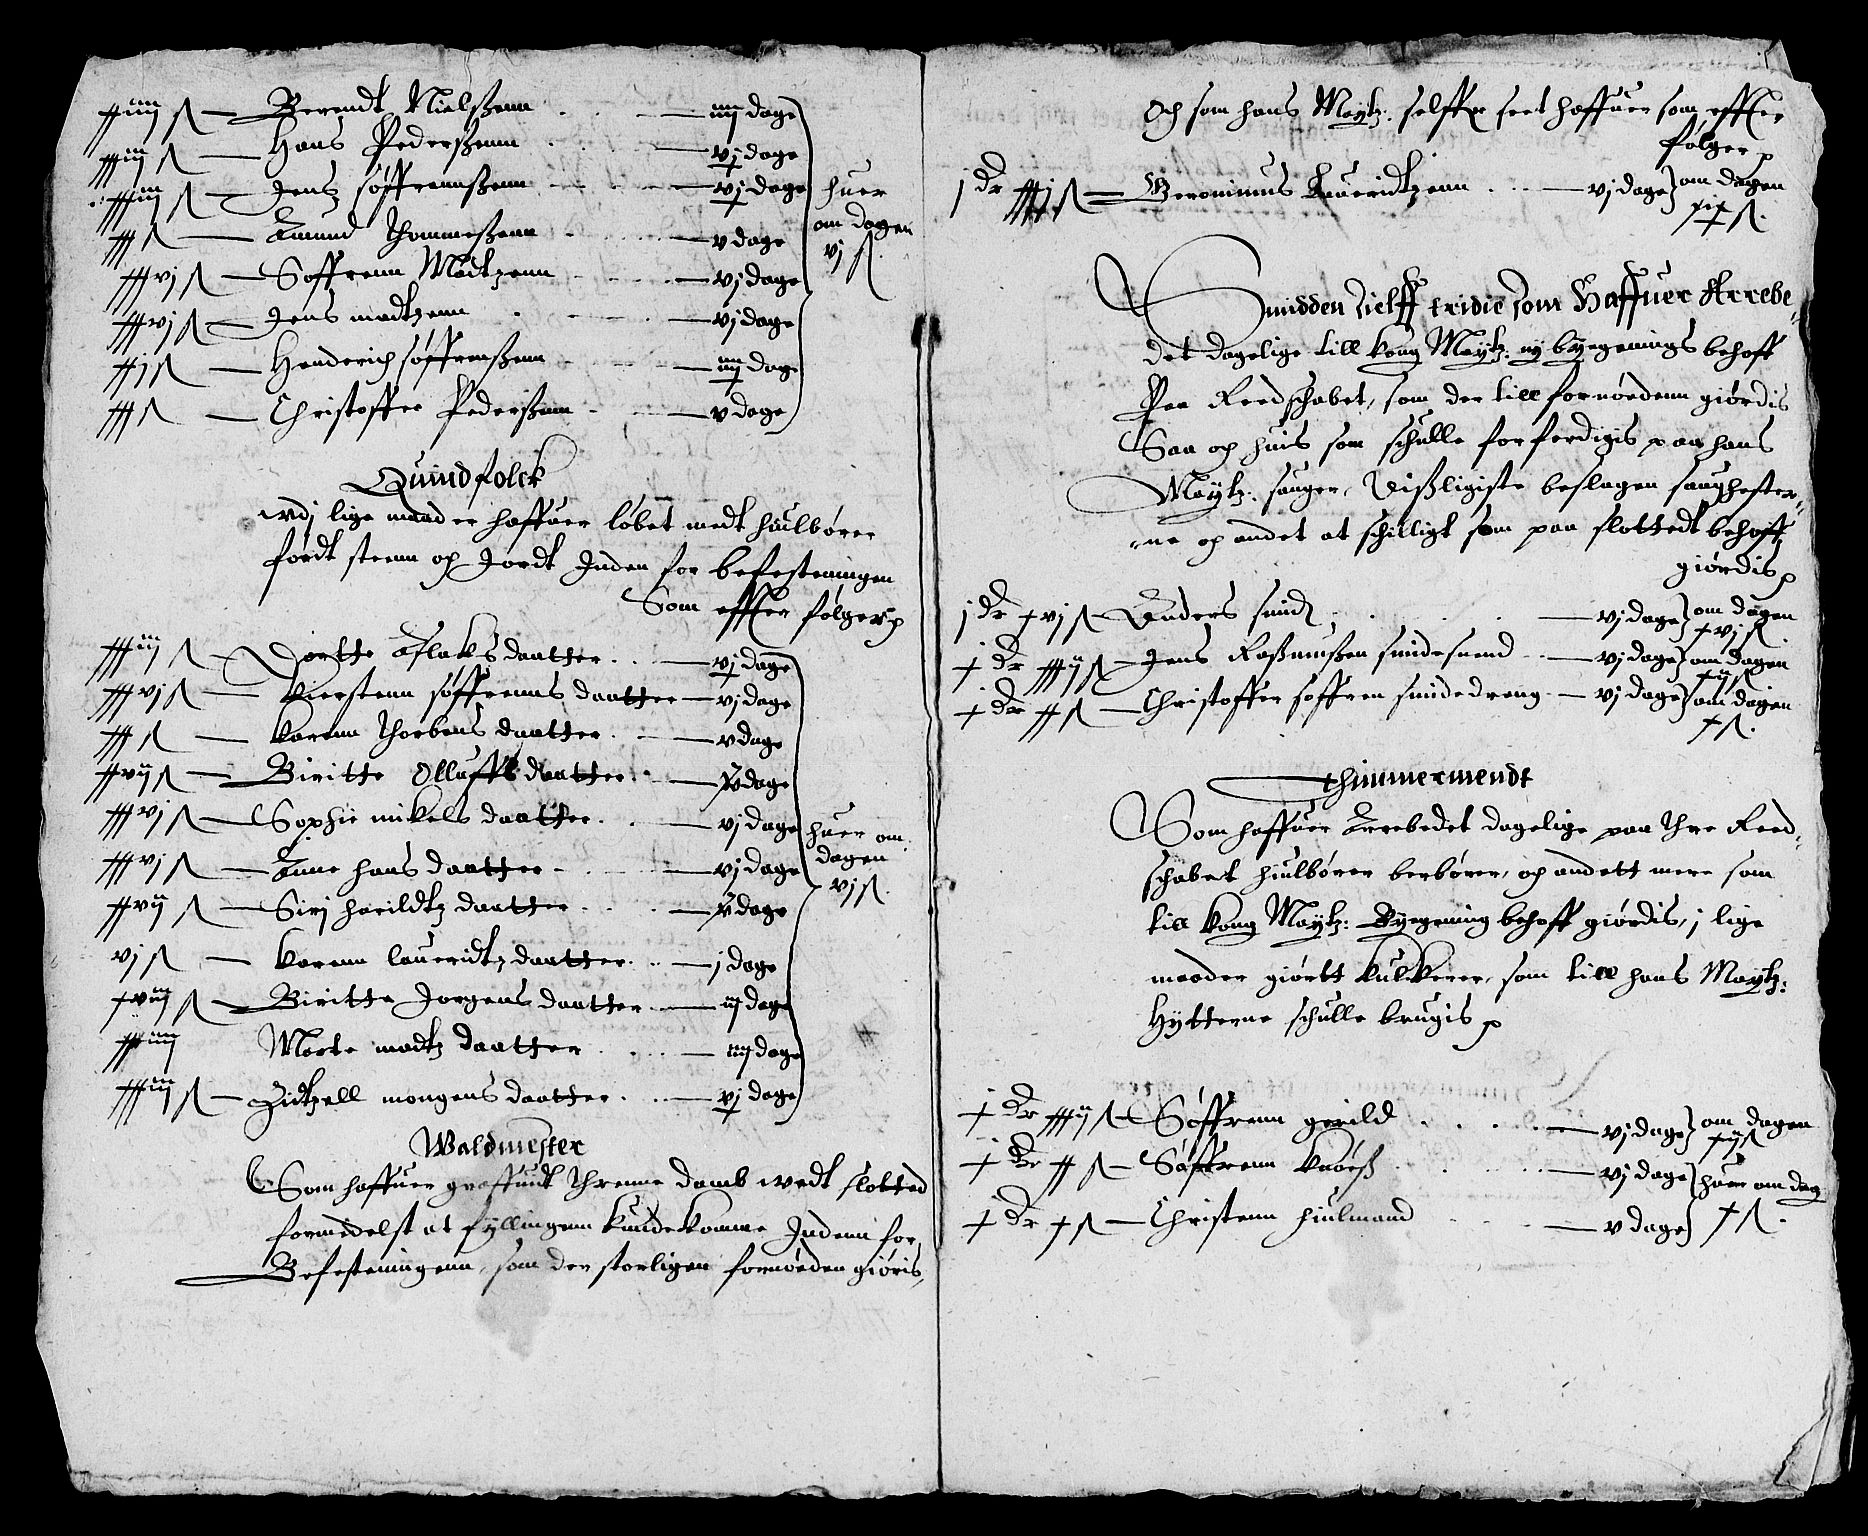 xxiiij ß — Berendt Nielßenn — iiij dage
xxxiij ß — Hans Pederßenn — vj dage
xxxiij ß — Jens Søffrennßenn — vj dage
huer
xxx ß — Amund Thommeßenn — v dage
om dagen
xxxvj ß — Soffrenn Madtzenn — vj dage
vj ß
xxxvj ß — Jens madtzenn — vj dage
xxj ß — Henderich søffrenßenn — iiij dage
xxx ß — Christoffer Pederßenn — v dage
Quindfolck
wdj lige maader haffuer løbet medt hiulbører
fördt steenn och Jordt Inden for befesteningen
Som effter følger
xxxiij ß — Dortte Aslaks daatter — vj dage
xxxvj ß — Kierstenn søffrenns daatter — vj dage
xxx ß — Karenn Thorbens daatter — v dage
xxvij ß — Biritte Olluffs daatter — v dage
xxxvj ß — Sophie mikels daatter — vj dage
huer om
xxxvj ß — Anne hans daatter — vj dage
dagen
vj ß
xxvij ß — Sirj harildtz daatter — v dage
vj ß — Karenn lauridtz daatter — j dage
xviij ß — Biritte Jørgens daatter — iij dage
xxiiij Merte madtz daatter — iiij dage
xxxiij ß — Zidtzell mongens daatter — vj dage
Waldmester
Som haffuer graffuidt Threnne damb wedt slotted
formedelst at fyllingenn kunde komme Indenn for
Befesteningenn, som der storligen fornøden giøris,
Och som hans Maytz: selffr seet haffuer som effter
følger
j dr xxxxj ß — Geronimus Lauridtzenn — vj dage om dagen
xix ß
Smidden sielff tridie som Haffuer Arrebe-
det dagelige till kong Maytz: ny bygenings behoff
Paa Reedschabet, som der till fornødenn giördis
Saa och huis som schulle forferdigis paa hans
Maytz: sauger, Dißligiste beslagen saughester-
ne och andet at schilligt som paa slottedt behoff
giördis
j dr xvj ß — Anders smid — vj dage om dagen
xvj ß
j dr xxxij ß — Jens Raßmußen smidesuend — vj dage om dagen
xij ß
j dr xx ß — Christoffer soffren smidedreng — vj dage om dagen
x ß
Thimmermendt
Som haffuer Arrebedet dagelige paa Thre Reed-
schabet hiulbører berbører, och andett mere som
till kong Maytz: Bygening behoff giördis, j lige
maader giörtt kulkerer, som till hans Maytz:
Hytterne schulle brugis
j dr xxxij ß — Søffrenn gerild — vj dage om dagen
xij ß
j dr xx ß — Søffrenn — vj dage huer om dag
j dr x ß — Christenn hiulmand — v dage x ß